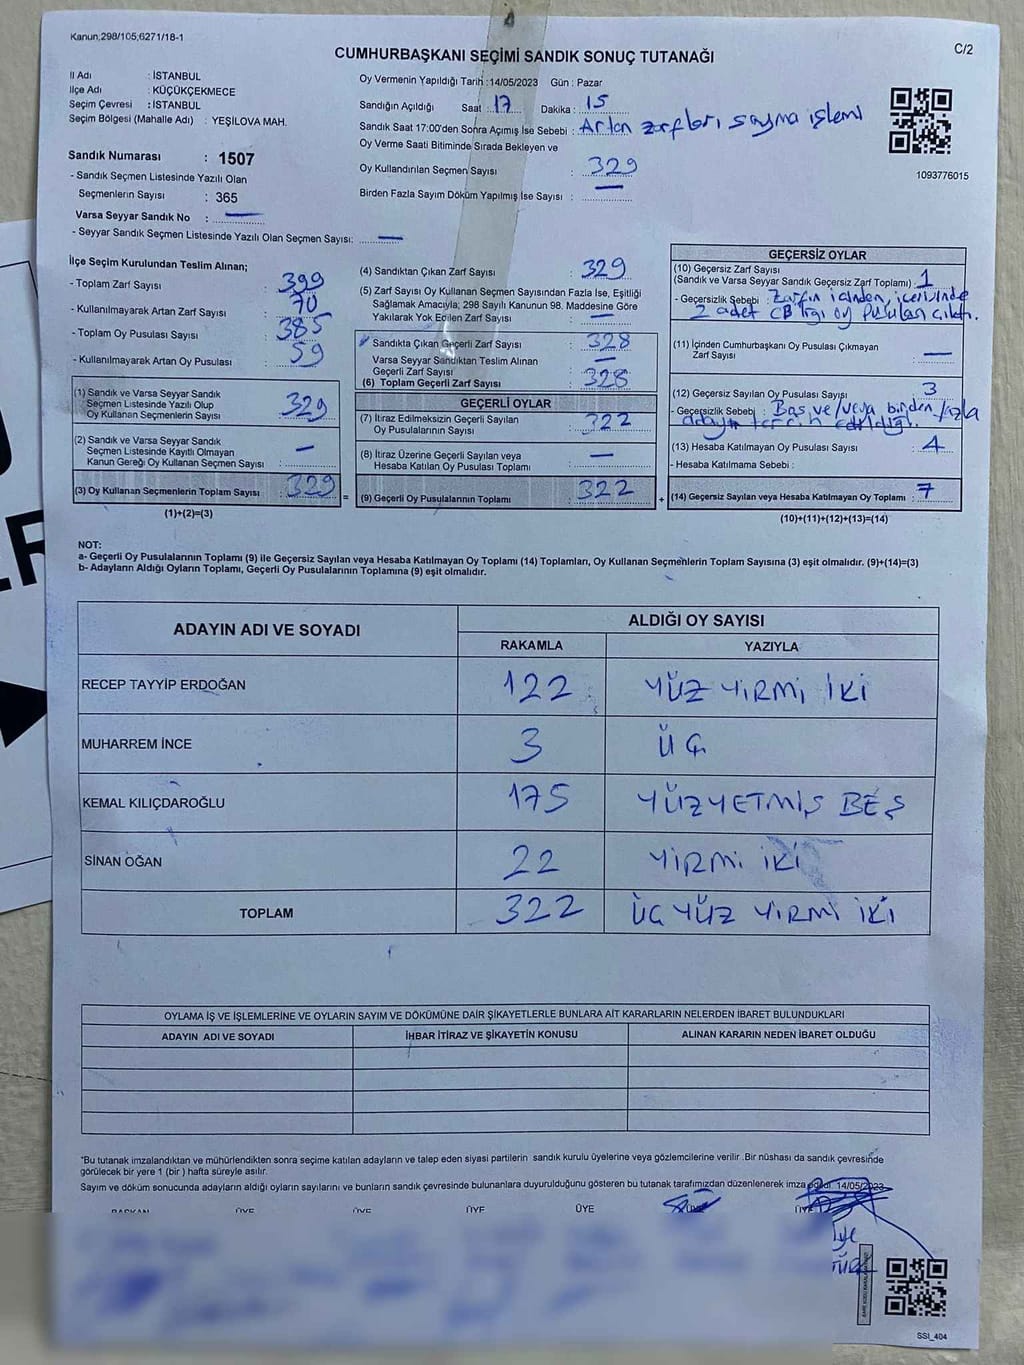 Kanun,298/105,6271/18-1
C/2
CUMHURBAŞKANI SEÇİMİ SANDIK SONUÇ TUTANAĞI
İl Adı : İSTANBUL
İlçe Adı : KÜÇÜKÇEKMECE
Seçim Çevresi : İSTANBUL
Seçim Bölgesi (Mahalle Adı) : YEŞİLOVA MAH.
Sandık Numarası : 1507
- Sandık Seçmen Listesinde Yazılı Olan
Seçmenlerin Sayısı : 365
Varsa Seyyar Sandık No : —
- Seyyar Sandık Seçmen Listesinde Yazılı Olan Seçmen Sayısı: —
Oy Vermenin Yapıldığı Tarih :14/05/2023 Gün : Pazar
Sandığın Açıldığı Saat : 17 Dakika : 15
Sandık Saat 17:00'den Sonra Açımış İse Sebebi : Artan zarfları sayma işlemi
Oy Verme Saati Bitiminde Sırada Bekleyen ve
Oy Kullandırılan Seçmen Sayısı : 329
Birden Fazla Sayım Döküm Yapılmış İse Sayısı : —
1093776015
İlçe Seçim Kurulundan Teslim Alınan;
- Toplam Zarf Sayısı : 399
- Kullanılmayarak Artan Zarf Sayısı : 70
- Toplam Oy Pusulası Sayısı : 385
- Kullanılmayarak Artan Oy Pusulası : 59
(1) Sandık ve Varsa Seyyar Sandık
Seçmen Listesinde Yazılı Olup
Oy Kullanan Seçmenlerin Sayısı : 329
(2) Sandık ve Varsa Seyyar Sandık
Seçmen Listesinde Kayıtlı Olmayan
Kanun Gereği Oy Kullanan Seçmen Sayısı : —
(3) Oy Kullanan Seçmenlerin Toplam Sayısı : 329
(1)+(2)=(3)
=
(4) Sandıktan Çıkan Zarf Sayısı : 329
(5) Zarf Sayısı Oy Kullanan Seçmen Sayısından Fazla İse, Eşitliği
Sağlamak Amacıyla; 298 Sayılı Kanunun 98. Maddesine Göre
Yakılarak Yok Edilen Zarf Sayısı : —
Sandıkta Çıkan Geçerli Zarf Sayısı : 328
Varsa Seyyar Sandıktan Teslim Alınan
Geçerli Zarf Sayısı : —
(6) Toplam Geçerli Zarf Sayısı : 328
GEÇERLİ OYLAR
(7) İtiraz Edilmeksizin Geçerli Sayılan
Oy Pusulalarının Sayısı : 322
(8) İtiraz Üzerine Geçerli Sayılan veya
Hesaba Katılan Oy Pusulası Toplamı : —
(9) Geçerli Oy Pusulalarının Toplamı : 322
+
GEÇERSİZ OYLAR
(10) Geçersiz Zarf Sayısı
(Sandık ve Varsa Seyyar Sandık Geçersiz Zarf Toplamı) : 1
- Geçersizlik Sebebi : Zarfın içinden, içerisinde
2 adet CB lığı oy pusulası çıktı.
(11) İçinden Cumhurbaşkanı Oy Pusulası Çıkmayan
Zarf Sayısı : —
(12) Geçersiz Sayılan Oy Pusulası Sayısı : 3
- Geçersizlik Sebebi : Boş ve/veya birden fazla
adayın tercih edildiği.
(13) Hesaba Katılmayan Oy Pusulası Sayısı : 4
- Hesaba Katılmama Sebebi :
(14) Geçersiz Sayılan veya Hesaba Katılmayan Oy Toplamı : 7
(10)+(11)+(12)+(13)=(14)
NOT:
a- Geçerli Oy Pusulalarının Toplamı (9) ile Geçersiz Sayılan veya Hesaba Katılmayan Oy Toplamı (14) Toplamları, Oy Kullanan Seçmenlerin Toplam Sayısına (3) eşit olmalıdır. (9)+(14)=(3)
b- Adayların Aldığı Oyların Toplamı, Geçerli Oy Pusulalarının Toplamına (9) eşit olmalıdır.
ADAYIN ADI VE SOYADI
ALDIĞI OY SAYISI
RAKAMLA YAZIYLA
RECEP TAYYİP ERDOĞAN 122 YÜZ YİRMİ İKİ
MUHARREM İNCE 3 ÜÇ
KEMAL KILIÇDAROĞLU 175 YÜZYETMİŞ BEŞ
SİNAN OĞAN 22 YİRMİ İKİ
TOPLAM 322 ÜÇ YÜZ YİRMİ İKİ
OYLAMA İŞ VE İŞLEMLERİNE VE OYLARIN SAYIM VE DÖKÜMÜNE DAİR ŞİKAYETLERLE BUNLARA AİT KARARLARIN NELERDEN İBARET BULUNDUKLARI
ADAYIN ADI VE SOYADI İHBAR İTİRAZ VE ŞİKAYETİN KONUSU ALINAN KARARIN NEDEN İBARET OLDUĞU
*Bu tutanak imzalandıktan ve mühürlendikten sonra seçime katılan adayların ve talep eden siyasi partilerin sandık kurulu üyelerine veya gözlemcilerine verilir .Bir nüshası da sandık çevresinde
görülecek bir yere 1 (bir ) hafta süreyle asılır.
Sayım ve döküm sonucunda adayların aldığı oyların sayılarını ve bunların sandık çevresinde bulunanlara duyurulduğunu gösteren bu tutanak tarafımızdan düzenlenerek imza edildi 14/05/2023
BAŞKAN ÜYE ÜYE ÜYE ÜYE ÜYE ÜYE
SSI_404